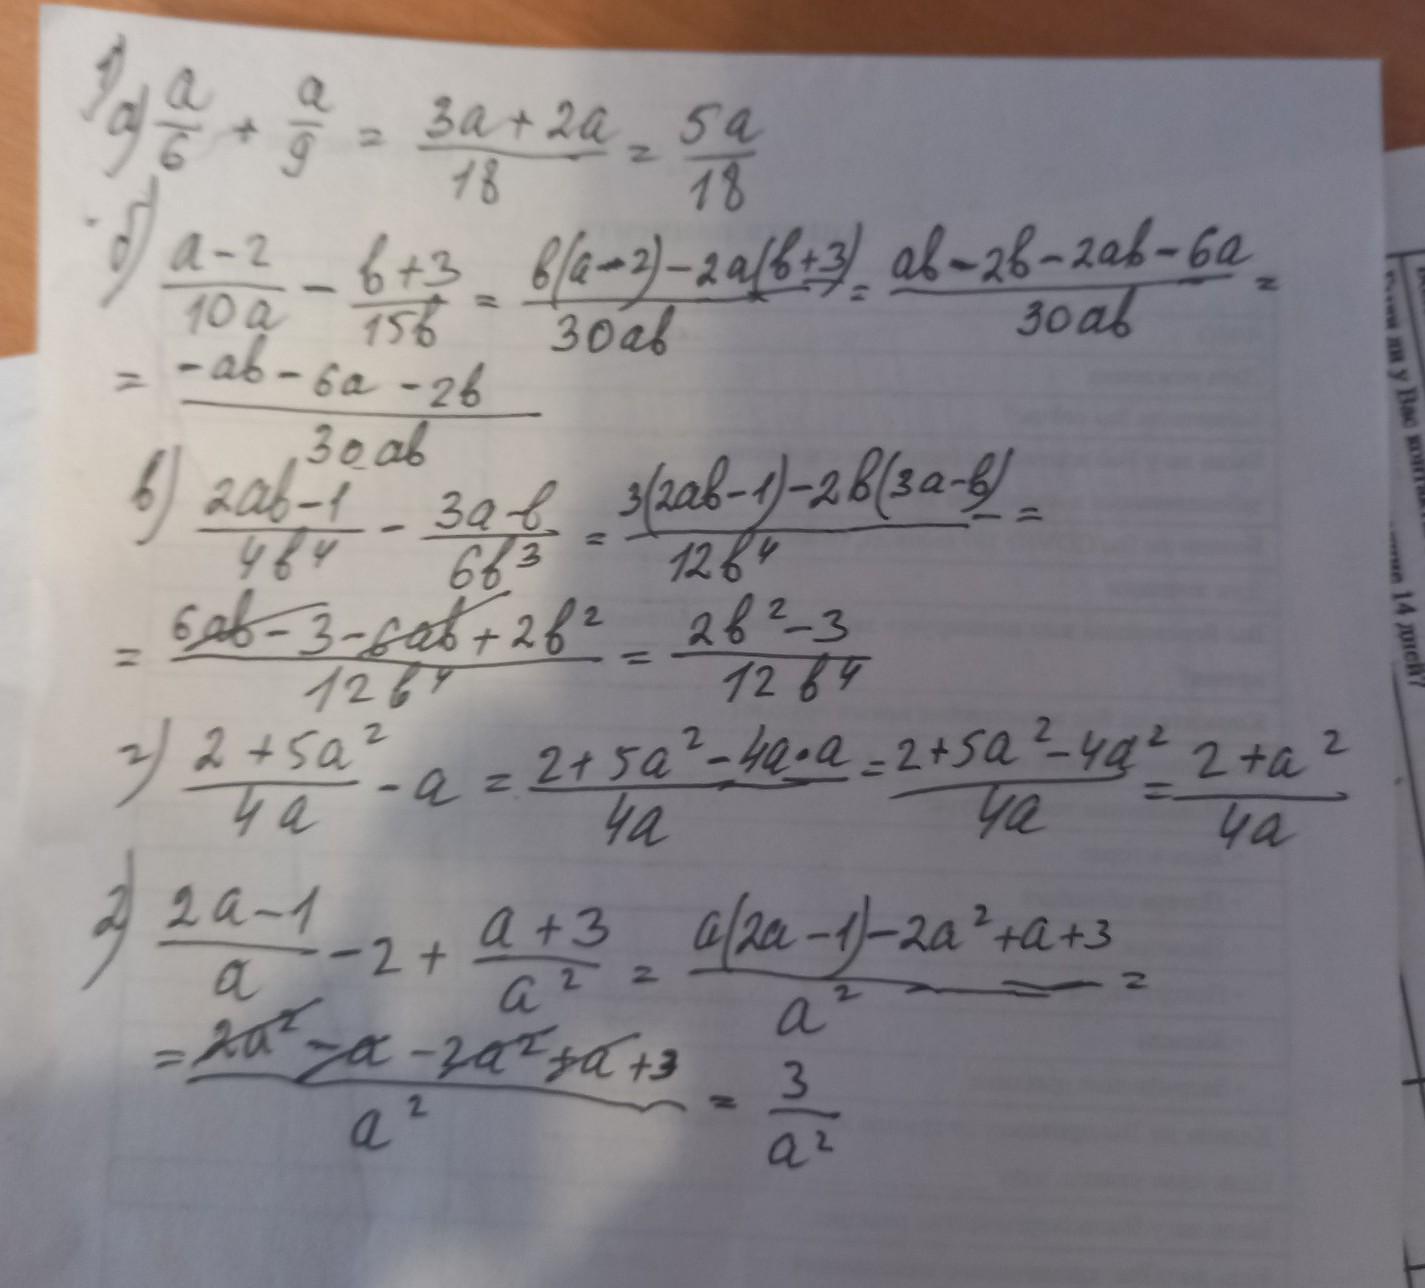 1) а) a/6 + a/9 = (3a + 2a)/18 = 5a/18
б) (a - 2)/10a - (b + 3)/15b = (b(a - 2) - 2a(b + 3))/30ab = (ab - 2b - 2ab - 6a)/30ab =
= (-ab - 6a - 2b)/30ab
в) (2ab - 1)/4b⁴ - (3a - b)/6b³ = (3(2ab - 1) - 2b(3a - b))/12b⁴ =
= (6ab - 3 - 6ab + 2b²)/12b⁴ = (2b² - 3)/12b⁴
г) (2 + 5a²)/4a - a = (2 + 5a² - 4a·a)/4a = (2 + 5a² - 4a²)/4a = (2 + a²)/4a
2) (2a - 1)/a - 2 + (a + 3)/a² = (a(2a - 1) - 2a² + a + 3)/a² =
= (2a² - a - 2a² + a + 3)/a² = 3/a²
ли у Вас
14 дней?